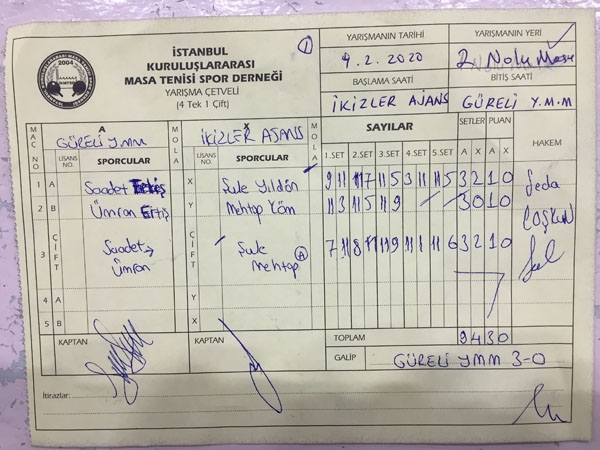 2004
İSTANBUL
KURULUŞLARARASI
MASA TENİSİ SPOR DERNEĞİ
YARIŞMA ÇETVELİ
(4 Tek 1 Çift)
1
YARIŞMANIN TARİHİ
9.2.2020
YARIŞMANIN YERİ
2 Nolu Masa
BAŞLAMA SAATİ
BİTİŞ SAATİ
İKİZLER AJANS
GÜRELİ Y.M.M
MAÇ NO
A
GÜRELİ YMM
MOLA
X
İKİZLER AJANS
MOLA
SAYILAR
SETLER
PUAN
HAKEM
LİSANS NO.
SPORCULAR
LİSANS NO.
SPORCULAR
1.SET 2.SET 3.SET 4.SET 5.SET A X A X
1 A Saadet X Şule Yıldön 9 11 11 7 11 5 3 11 11 5 3 2 1 0 Seda
2 B Ümran Ertiş Y Mehtap 11 3 11 5 11 9 3 0 1 0 COŞKUN
3 ÇİFT Saadet Ümran ÇİFT Şule Mehtap A 7 11 8 11 11 9 11 1 11 6 3 2 1 0
4 A Y
5 B X
KAPTAN
KAPTAN
TOPLAM 9 4 3 0
GALİP GÜRELİ YMM 3-0
İtirazlar: